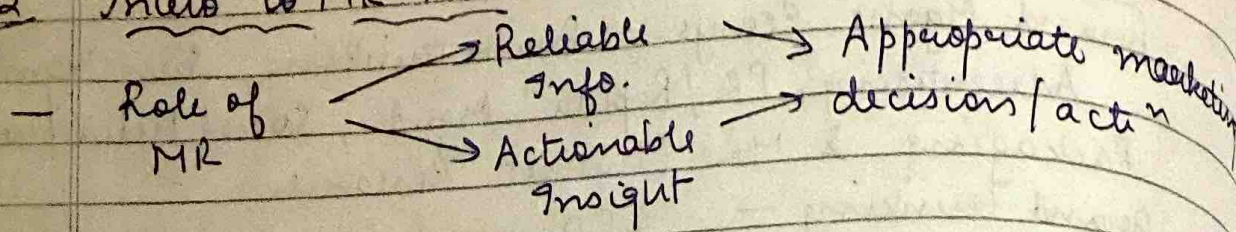 2 Intro to MR
Reliable Info. Appropriate marketing
— Role of MR decisions / actⁿ
Actionable Insight